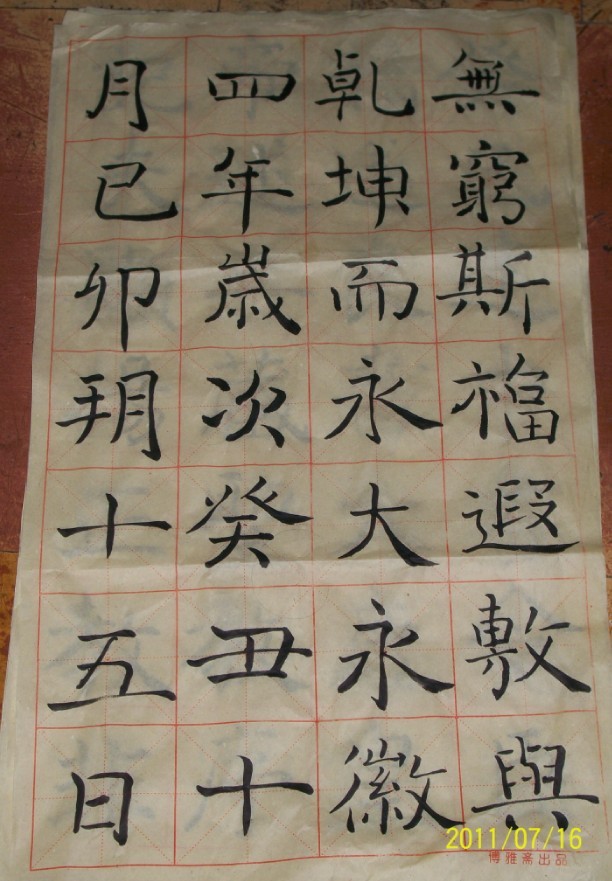 無窮斯福遐敷與
乾坤而永大永徽
四年歲次癸丑十
月已卯朔十五日
2011/07/16
博雅斋出品